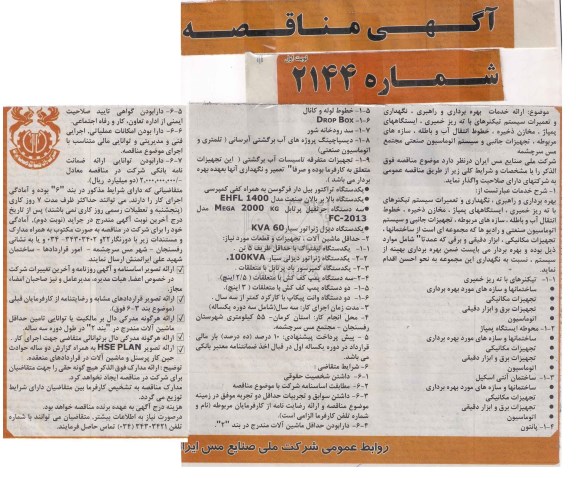 آگهی مناقصه
نوبت اول
شماره ۲۱۴۴
موضوع: ارائه خدمات بهره برداری و راهبری ، نگهداری
و تعمیرات سیستم تیکنرهای با ته ریز خمیری ، ایستگاههای
پمپاژ ، مخازن ذخیره ، خطوط انتقال آب و باطله ، سازه های
مربوطه، تجهیزات جانبی و سیستم اتوماسیون صنعتی مجتمع
مس سرچشمه
شرکت ملی صنایع مس ایران درنظر دارد موضوع مناقصه فوق
الذکر را با مشخصات و شرایط کلی زیر از طریق مناقصه عمومی
به شرکتهای دارای صلاحیت واگذار نماید.
۱- شرح خدمات عبارتست از:
بهره برداری و راهبری ، نگهداری و تعمیرات سیستم تیکنرهای
با ته ریز خمیری ، ایستگاههای پمپاژ ، مخازن ذخیره ، خطوط
انتقال آب و باطله ، سازه های مربوطه، تجهیزات جانبی و سیستم
اتوماسیون صنعتی و رادیو ها که مجموعه ای است از ساختمانها،
تجهیزات مکانیکی ، ابزار دقیقی و برقی که عمدتا" شامل موارد
ذیل بوده و بهره بردار می بایست ضمن بهره برداری بهینه از
سیستم ، نسبت به نگهداری این مجموعه به نحو احسن اقدام
نماید.
۱-۱- تیکنرهای با ته ریز خمیری
ساختمانها و سازه های مورد بهره برداری
تجهیزات مکانیکی
تجهیزات برق و ابزار دقیقی
اتوماسیون
۱-۲- محوطه ایستگاه پمپاژ
ساختمانها و سازه های مورد بهره برداری
تجهیزات مکانیکی
تجهیزات برق و ابزار دقیقی
اتوماسیون
۱-۳- ساختمان آنتی اسکیل
ساختمانها و سازه های مورد بهره برداری
تجهیزات مکانیکی
تجهیزات برق و ابزار دقیقی
اتوماسیون
۱-۴- پانتون
۱-۵- خطوط لوله و کانال
۱-۶- DROP BOX
۱-۷- سد رودخانه شور
۱-۸- دیسپاچینگ پروژه های آب برگشتی آبرسانی ( تلمتری و
اتوماسیون صنعتی)
۱-۹- تجهیزات متفرقه تاسیسات آب برگشتی ( این تجهیزات
متعلق به کارفرما بوده و صرفا" تعمیر و نگهداری آنها بعهده بهره
بردار می باشد.)
یکدستگاه تراکتور بیل دار فرگوسن به همراه کفی کمپرسی
یکدستگاه بالا بر بالان صنعت مدل EHFL 1400
سه دستگاه جرثقیل پرتابل MEGA 2000 KG مدل
FC-2013
یکدستگاه دیزل ژنراتور سیار KVA 60
۲- حداقل ماشین آلات ، تجهیزات و قطعات مورد نیاز:
۲-۱- یکدستگاه
۲-۲- یکدستگاه ژنراتور دیزلی سیار 100KVA.
۲-۳- یکدستگاه کمپرسور باد پرتابل با متعلقات
۲-۴- سه دستگاه پمپ کف کش با متعلقات ( ۲/۵ اینچ).
۲-۵- دو دستگاه پمپ کف کش با متعلقات ( ۳ اینچ).
۲-۶- دو دستگاه وانت پیکاپ با کارکرد کمتر از سه سال.
۳- مدت زمان اجرای کار: سه سال(شامل سه دوره یکساله)
۴- محل انجام کار: استان کرمان- ۵۵ کیلومتری شهرستان
رفسنجان - مجتمع مس سرچشمه.
۵ - پیش پرداخت پیشنهادی: ۱۰ درصد (ده درصد) بار مالی
قرارداد در دوره یکساله اول در قبال اخذ ضمانتنامه معتبر بانکی
می باشد.
۶- شرایط متقاضی :
۶-۱- داشتن شخصیت حقوقی
۶-۲- مطابقت اساسنامه شرکت با موضوع مناقصه
۶-۳- داشتن سوابق و تجربیات حداقل دو تجربه موفق در زمینه
موضوع مناقصه و ارائه رضایت نامه از کارفرمایان مربوطه (نام و
شماره تلفن کارفرما الزامی است).
۶-۴- دارابودن حداقل ماشین آلات مندرج در بند "۲".
۶-۵- دارابودن گواهی تایید صلاحیت
ایمنی از اداره تعاون، کار و رفاه اجتماعی.
۶-۶- دارا بودن امکانات عملیاتی، اجرایی
فنی و مدیریتی و توانایی مالی متناسب با
اجرای موضوع مناقصه.
۶-۷- دارابودن توانایی ارائه ضمانت
نامه بانکی شرکت در مناقصه معادل
۲،۰۰۰،۰۰۰،۰۰۰ (دو میلیارد ریال).
متقاضیانی که دارای شرایط مذکور در بند "۶" بوده و آمادگی
اجرای کار را دارند، می توانند حداکثر ظرف مدت ۷ روز کاری
(پنجشنبه و تعطیلات رسمی روز کاری نمی باشند) پس از تاریخ
درج آخرین نوبت آگهی مندرج در جراید (نوبت دوم)، آمادگی
خود را برای شرکت در مناقصه به صورت مکتوب به همراه مدارک
و مستندات زیر با دورنگار ۳۴۳۰۳۴۰۴ - ۰۳۴ و یا به نشانی
رفسنجان - شهر مس سرچشمه - امور قراردادها - ساختمان
شهید علی ایرانمنش ارسال نمایند.
ارائه تصویر اساسنامه و آگهی روزنامه و آخرین تغییرات شرکت
در خصوص اعضا، هیات مدیره، مدیرعامل و نیز صاحبان امضاء
مجاز.
ارائه تصویر قراردادهای مشابه و رضایتنامه از کارفرمایان قبلی
(موضوع بند ۳-۶ فوق).
ارائه هرگونه مدرکی دال بر مالکیت یا توانایی تامین حداقل
ماشین آلات مندرج در "بند ۲" در طول دوره سه ساله.
ارائه هرگونه مدرکی دال بر توانائی متقاضی جهت اجرای کار.
ارائه تصویر HSE PLAN به همراه گزارش دو ساله حوادث
حین کار پرسنل و ماشین آلات در قراردادهای منعقده.
توضیح: ارائه مدارک فوق الذکر هیچ گونه حقی را جهت متقاضیان
برای شرکت در مناقصه ایجاد نخواهد کرد.
مدارک مناقصه به تشخیص کارفرما بین متقاضیان دارای شرایط
توزیع می گردد.
هزینه درج آگهی به عهده برنده مناقصه خواهد بود.
درصورت نیاز به اطلاعات بیشتر، متقاضیان می توانند با شماره
تلفن ۳۴۳۰۳۴۲۱ (۰۳۴) تماس حاصل فرمایند.
روابط عمومی شرکت ملی صنایع مس ایران